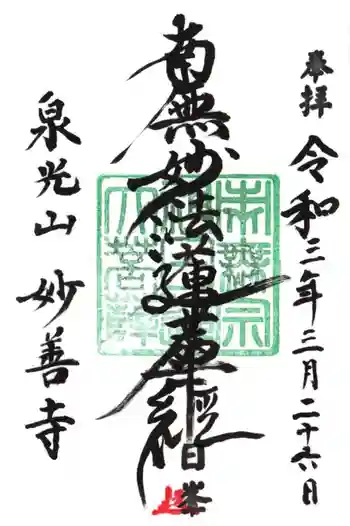 奉拝 令和三年三月二十六日
南無妙法蓮華経
泉光山 妙善寺